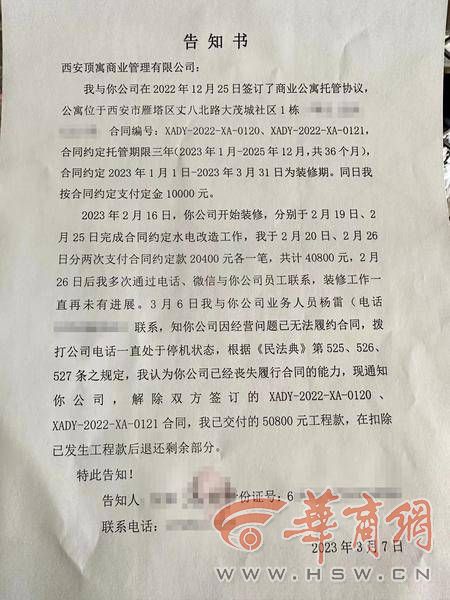 告知书
西安顶寓商业管理有限公司：
我与你公司在2022年12月25日签订了商业公寓托管协议，
公寓位于西安市雁塔区丈八北路大茂城社区1栋
合同编号：XADY-2022-XA-0120、XADY-2022-XA-0121，
合同约定托管期限三年(2023年1月-2025年12月，共36个月)，
合同约定2023年1月1日-2023年3月31日为装修期。同日我
按合同约定支付定金10000元。
2023年2月16日，你公司开始装修，分别于2月19日、2
月25日完成合同约定水电改造工作，我于2月20日、2月26
日分两次支付合同约定款20400元各一笔，共计40800元，2
月26日后我多次通过电话、微信与你公司员工联系，装修工作一
直再未有进展。3月6日我与你公司业务人员杨雷（电话
联系，知你公司因经营问题已无法履约合同，拨
打公司电话一直处于停机状态，根据《民法典》第525、526、
527条之规定，我认为你公司已经丧失履行合同的能力，现通知
你公司，解除双方签订的XADY-2022-XA-0120、
XADY-2022-XA-0121合同，我已交付的50800元工程款，在扣除
已发生工程款后退还剩余部分。
特此告知！
告知人 份证号：6
联系电话：
2023年3月7日
華商網
WWW.HSW.CN